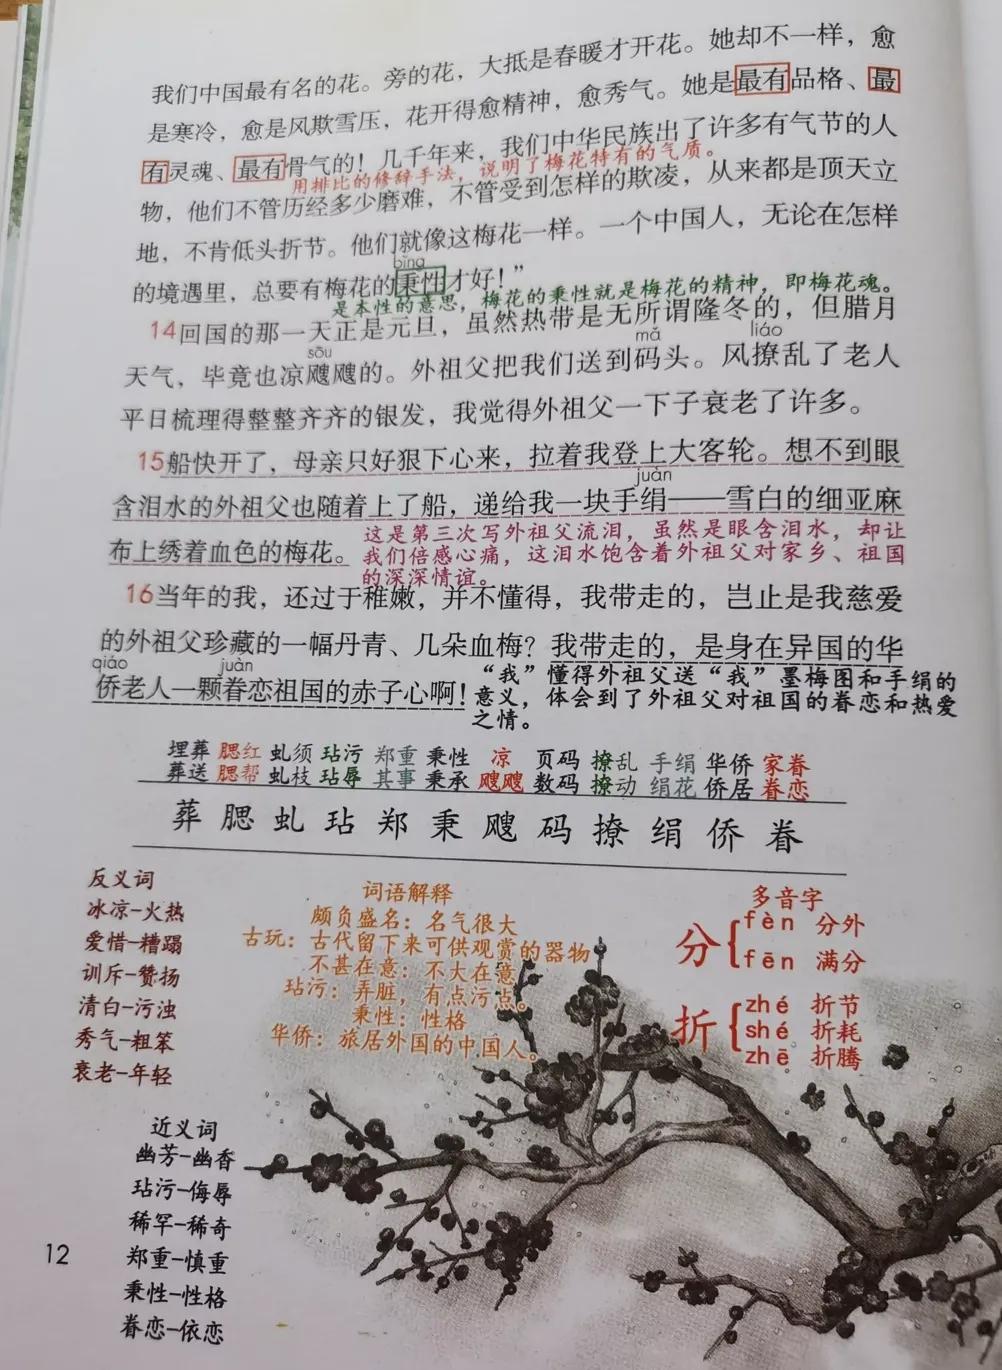 我们中国最有名的花。旁的花，大抵是春暖才开花。她却不一样，愈
是寒冷，愈是风欺雪压，花开得愈精神，愈秀气。她是最有品格、最
有灵魂、最有骨气的！几千年来，我们中华民族出了许多有气节的人
用排比的修辞手法，说明了梅花特有的气质。
物，他们不管历经多少磨难，不管受到怎样的欺凌，从来都是顶天立
地，不肯低头折节。他们就像这梅花一样。一个中国人，无论在怎样
bǐng
的境遇里，总要有梅花的秉性才好！”
是本性的意思，梅花的秉性就是梅花的精神，即梅花魂。
14回国的那一天正是元旦，虽然热带是无所谓隆冬的，但腊月
sōu mǎ liáo
天气，毕竟也凉飕飕的。外祖父把我们送到码头。风撩乱了老人
平日梳理得整整齐齐的银发，我觉得外祖父一下子衰老了许多。
15船快开了，母亲只好狠下心来，拉着我登上大客轮。想不到眼
juàn
含泪水的外祖父也随着上了船，递给我一块手绢——雪白的细亚麻
布上绣着血色的梅花。
这是第三次写外祖父流泪，虽然是眼含泪水，却让
我们倍感心痛，这泪水饱含着外祖父对家乡、祖国
的深深情谊。
16当年的我，还过于稚嫩，并不懂得，我带走的，岂止是我慈爱
的外祖父珍藏的一幅丹青、几朵血梅？我带走的，是身在异国的华
qiáo juàn
侨老人一颗眷恋祖国的赤子心啊！
“我”懂得外祖父送“我”墨梅图和手绢的
意义，体会到了外祖父对祖国的眷恋和热爱
之情。
埋葬 腮红 虬须 玷污 郑重 秉性 凉 页码 撩乱 手绢 华侨 家眷
葬送 腮帮 虬枝 玷辱 其事 秉承 飕飕 数码 撩动 绢花 侨居 眷恋
葬 腮 虬 玷 郑 秉 飕 码 撩 绢 侨 眷
反义词
冰凉-火热
爱惜-糟蹋
训斥-赞扬
清白-污浊
秀气-粗笨
衰老-年轻
词语解释
颇负盛名：名气很大
古玩：古代留下来可供观赏的器物
不甚在意：不大在意
玷污：弄脏，有点污点。
秉性：性格
华侨：旅居外国的中国人。
多音字
分
fèn 分外
fēn 满分
折
zhé 折节
shé 折耗
zhē 折腾
近义词
幽芳-幽香
玷污-侮辱
稀罕-稀奇
郑重-慎重
秉性-性格
眷恋-依恋
12